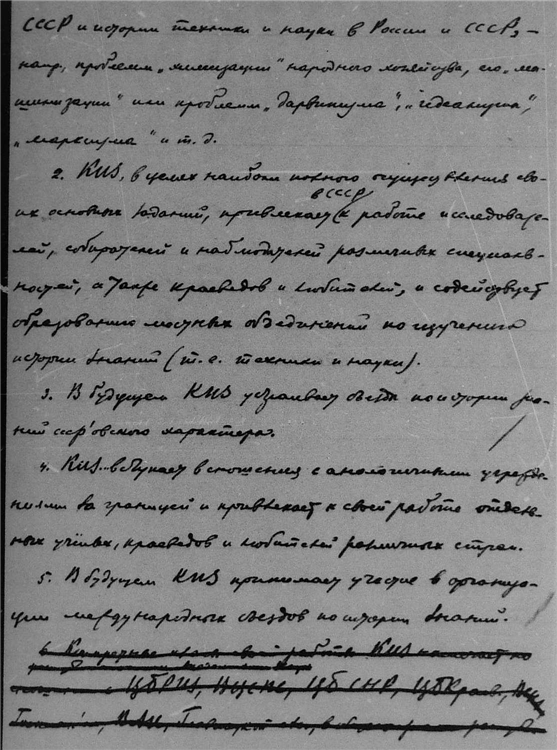 СССР и истории техники и науки в России и СССР, –
напр, проблемы „химизации" народного хозяйства, его „ма-
шинизации" или проблемы „дарвинизма",
„марксизма" и т. д.
2. КИЗ, в целях наиболее полного осуществления сво-
их основных заданий, привлекает в СССР к работе исследовате-
лей, собирателей и наблюдателей различных специаль-
ностей, а также краеведов и любителей, и содействует
образованию местных объединений по изучению
истории знаний (т. е. техники и науки).
3. В будущем КИЗ устраивает съезды по истории зна-
ний ссср'овского характера.
4. КИЗ вступает в сношения с аналогичными учрежде-
ниями за границей и привлекает к своей работе отдель-
ных учёных, краеведов и любителей различных стран.
5. В будущем КИЗ принимает участие в организа-
ции международных съездов по истории знаний.
6 своей работы КИЗ
ЦБРИЗ, ЦБ СНР, ЦБКраев,
ВАИ,